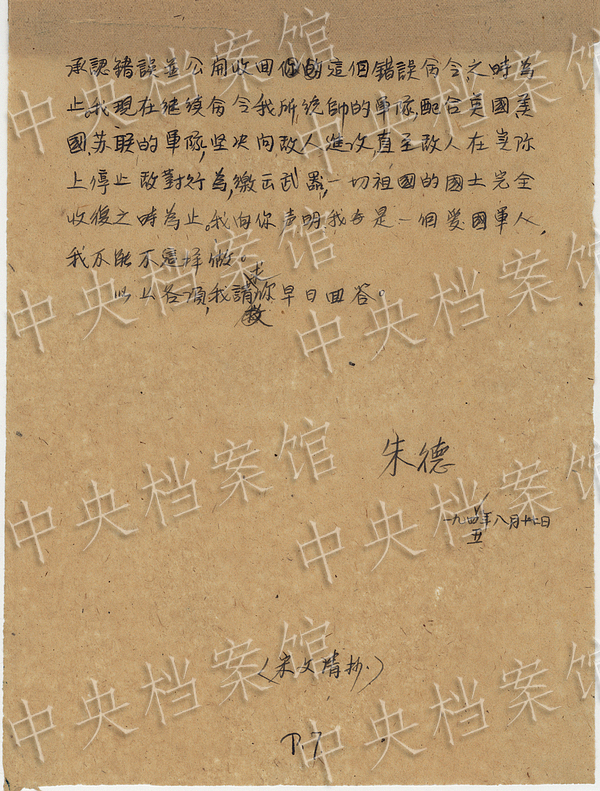 承認錯誤並公開收回你的這個錯誤命令之時為
止。我現在继续命令我所統帥的軍隊,配合英國,美
國,苏联的軍隊,坚决向敌人進攻,直至敌人在实际
上停止敌對行為,繳出武器,一切祖國的國土完全
收復之時為止。我向你声明,我是一個愛國軍人,
我不能不這樣做。
以上各項,我請求你早日回答。
朱德
一九四五年八月十六日
(宋文清抄)
P.7
中央档案馆